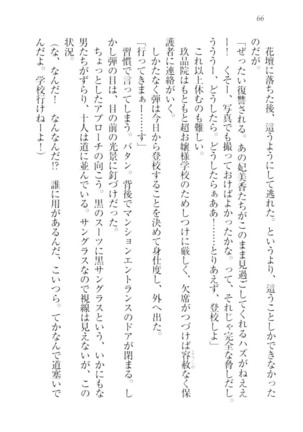 66
花壇に落ちた後、這うようにして逃れた。というより、這うことしかできなかった
のだが。
「ぜったい復讐される。あの妃美香たちがこのまま見過ごしてくれるハズがねえ
ー！ くそー、写真でも撮っておけばよかったかな。って、それじゃ完全な脅しだし。
あー、どうしたら。どうしたらぁああ……とりあえず、登校しよ」
これ以上休むのも難しい。
玖品院はもともと超お嬢様学校のためしつけに厳しく、欠席がつづけば容赦なく保
護者に連絡がいく。
しかたなく弾は今日から登校することを決めて身仕度し、外へ出た。
「行ってきまぁーー……す」
習慣で言ってしまう。バタン。背後でマンションエントランスのドアが閉まる。し
かし弾の目は、目の前の光景に釘づけだった。
ちょっとしたアプローチの向こう。黒のスーツに黒サングラスという、いかにもな
男たちがずらり、十人は道に並んでいる。サングラスなので視線は見えないが、この
状況。
（な、なんだ！ なんなんだ!? 誰に用があるんだ、こいつら。てかなんで道塞いで
んだよ。学校行けねーよ！）